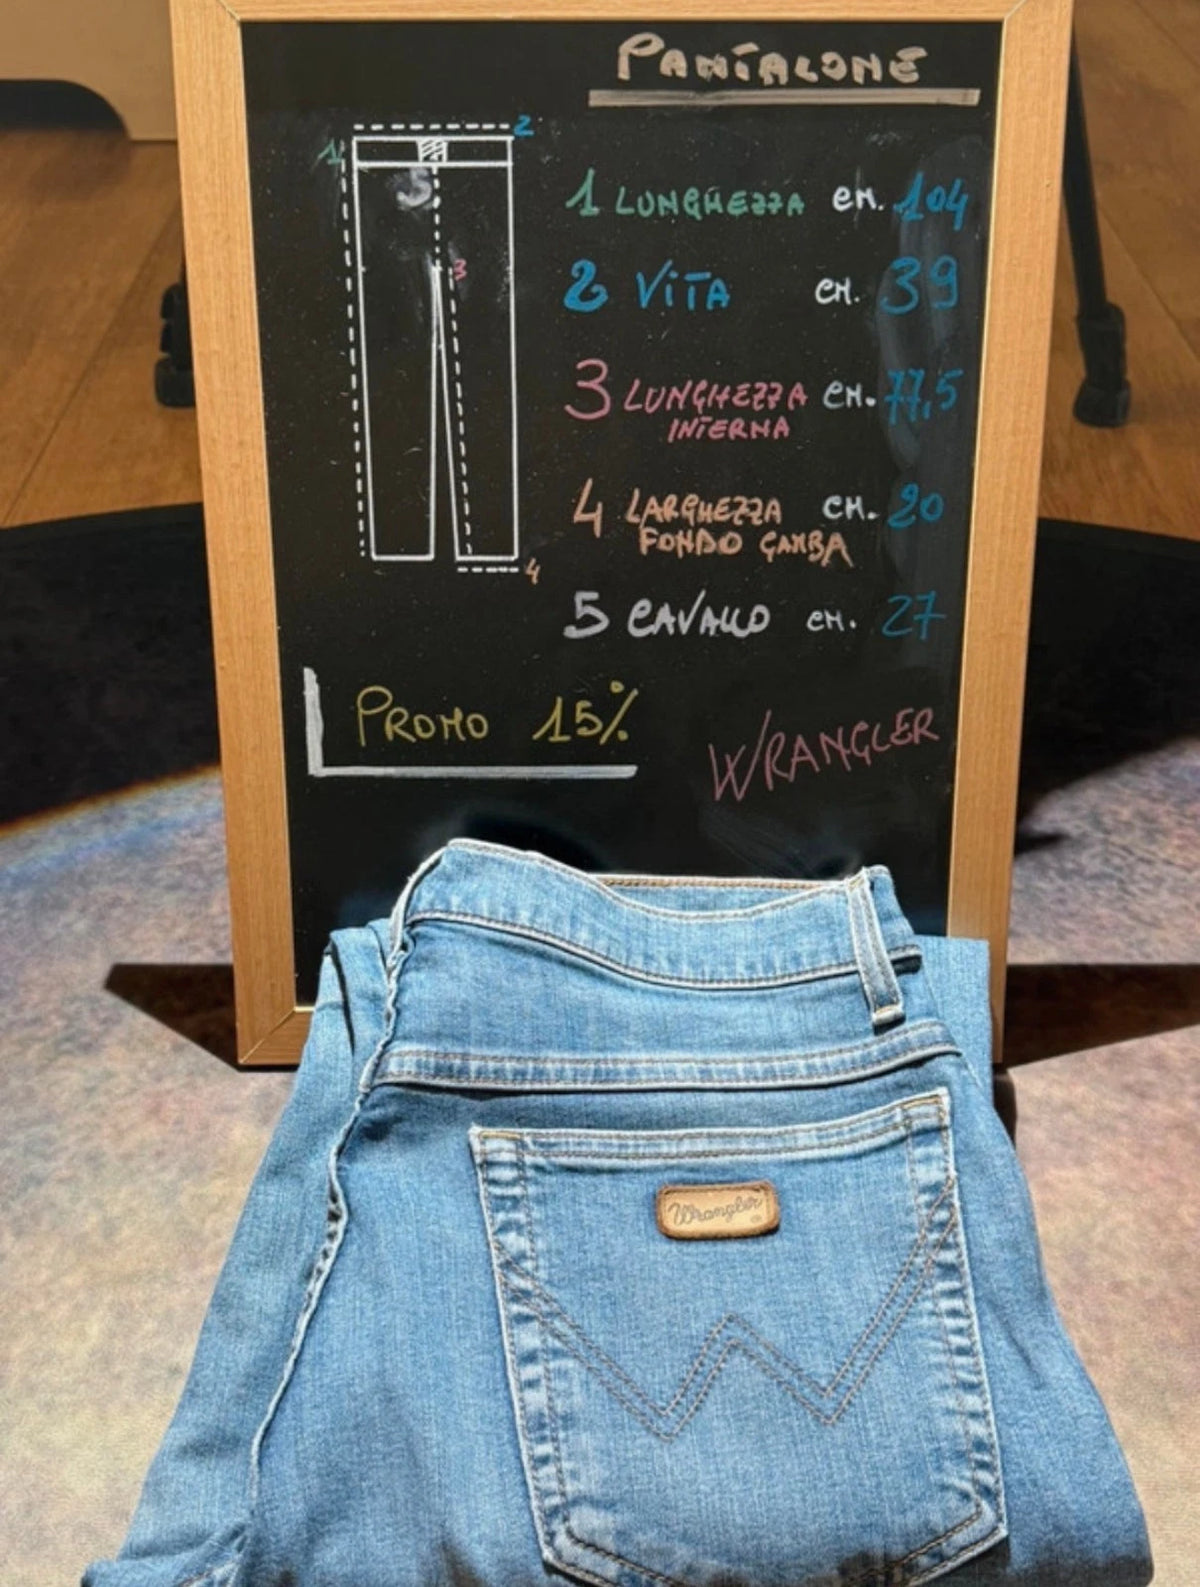 PANTALONE
1 2
1 LUNGHEZZA cm. 104
2 VITA cm. 39
3
3 LUNGHEZZA cm. 77,5
INTERNA
4 LARGHEZZA cm. 20
FONDO GAMBA
4
5 CAVALLO cm. 27
PROMO 15%
WRANGLER
Wrangler